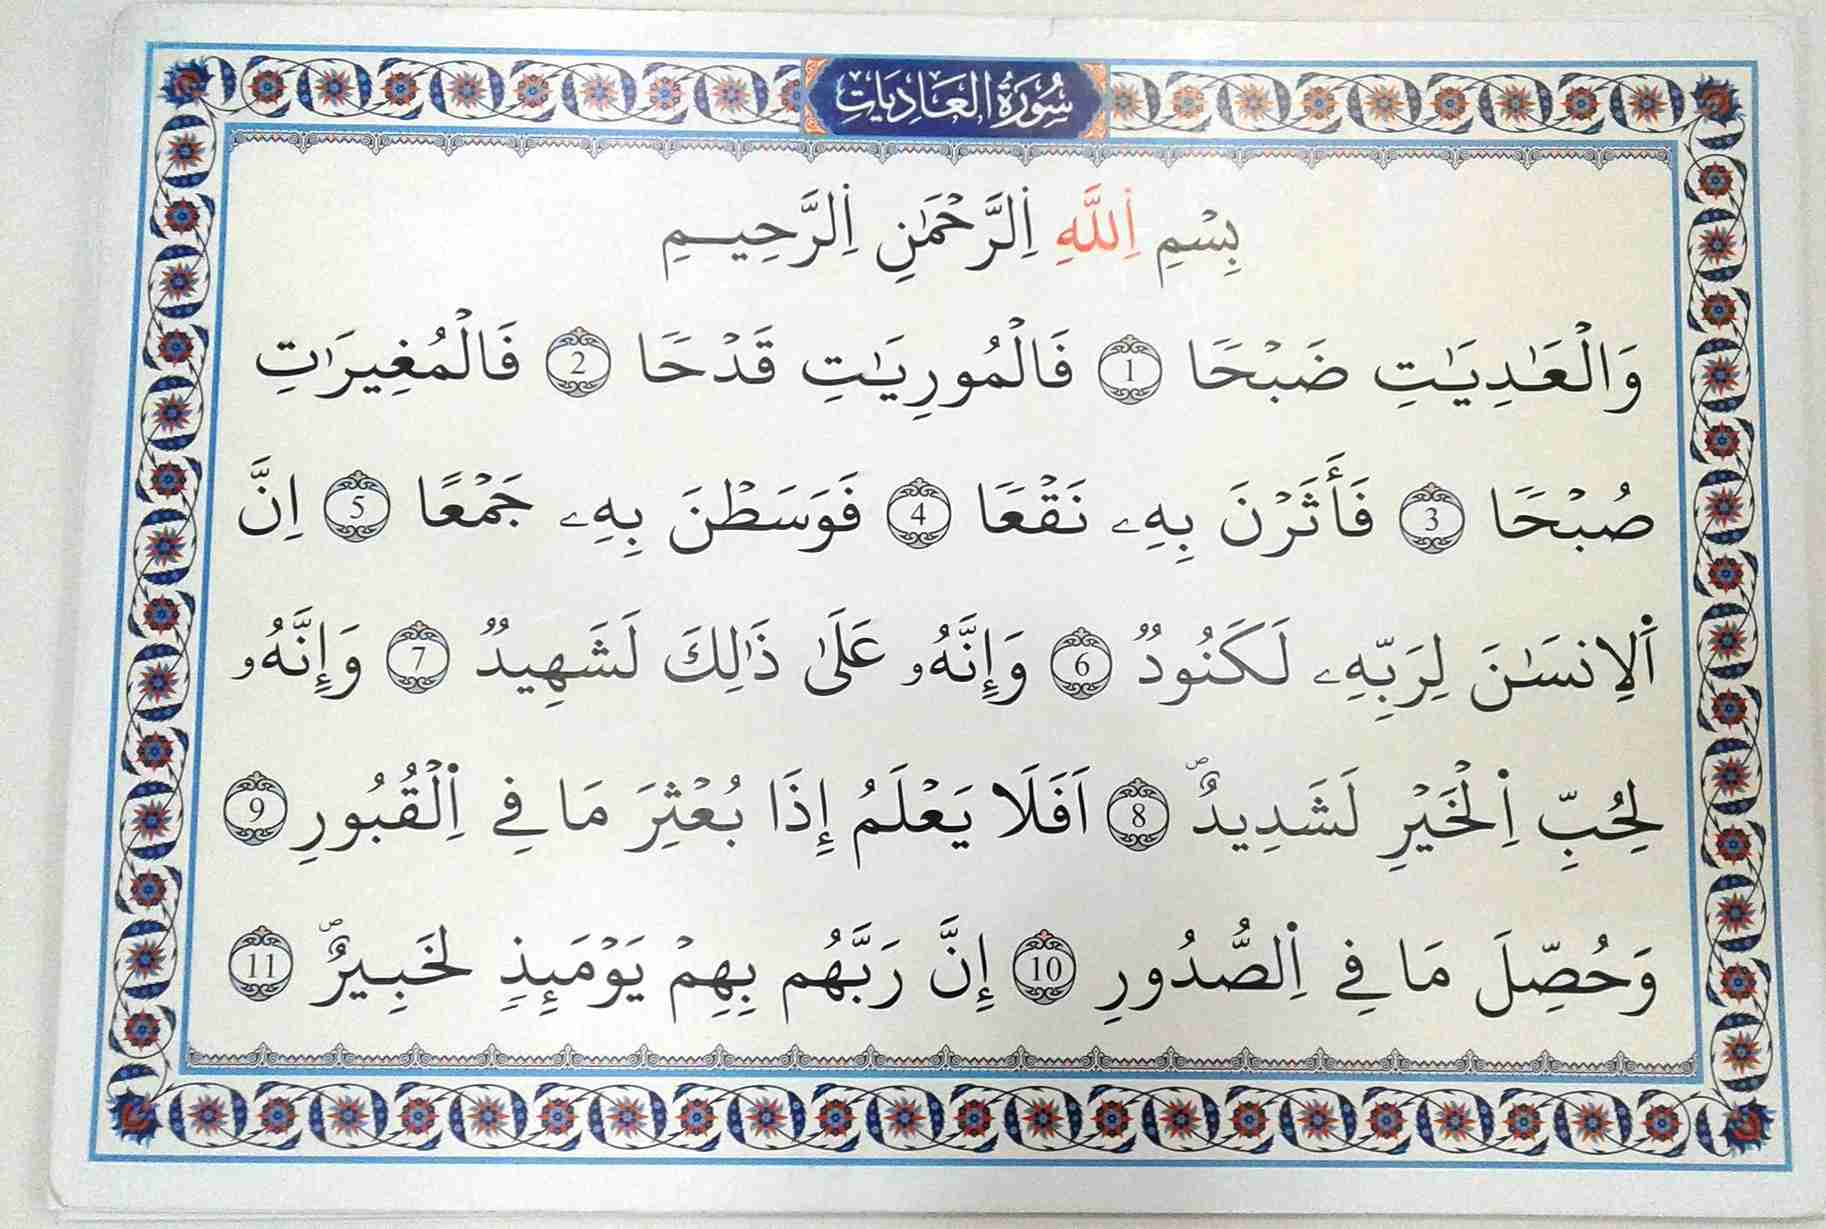 سُورَةُ العَادِيَاتِ
بِسْمِ اِ۬للَّهِ اِ۬لرَّحْمَٰنِ اِ۬لرَّحِيمِ
وَالْعَٰدِيَٰتِ ضَبْحاٗ 1 فَالْمُورِيَٰتِ قَدْحاٗ 2 فَالْمُغِيرَٰتِ
صُبْحاٗ 3 فَأَثَرْنَ بِهِۦ نَقْعاٗ 4 فَوَسَطْنَ بِهِۦ جَمْعًا 5 اِنَّ
اَ۬لِانسَٰنَ لِرَبِّهِۦ لَكَنُودٞ 6 وَإِنَّهُۥ عَلَىٰ ذَٰلِكَ لَشَهِيدٞ 7 وَإِنَّهُۥ
لِحُبِّ اِ۬لْخَيْرِ لَشَدِيدٌۖ 8 اَفَلَا يَعْلَمُ إِذَا بُعْثِرَ مَا فِے اِ۬لْقُبُورِ 9
وَحُصِّلَ مَا فِے اِ۬لصُّدُورِ 10 إِنَّ رَبَّهُم بِهِمْ يَوْمَئِذٖ لَخَبِيرٌۖ 11